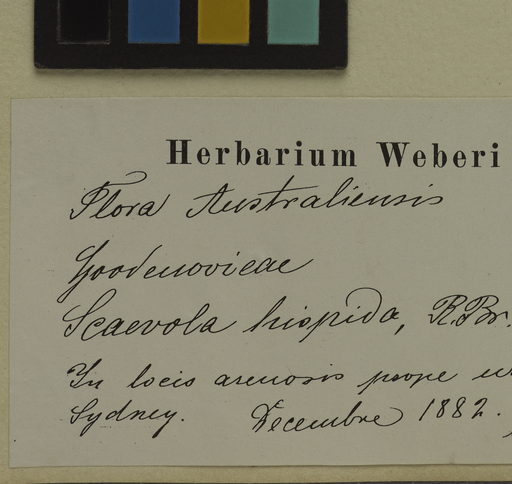 Herbarium Weberi
Flora Australiensis
Goodenovieae
Scaevola hispida, R.Br.
In locis arenosis prope
Sydney. Decembre 1882.